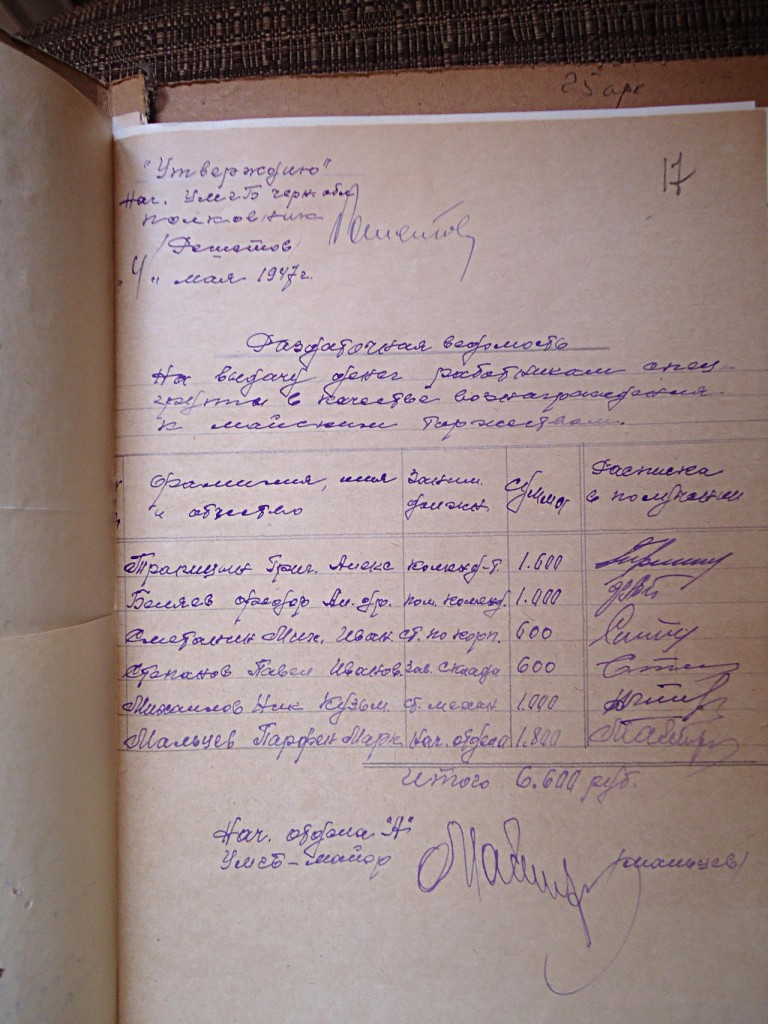 25 арк
17
"Утверждаю"
Нач. УМГБ Черн обл
полковник
/Решетов
"4" мая 1947 г.
Раздаточная ведомость
На выдачу денег работникам спец-
группы в качестве вознаграждения
к майским торжествам.
фамилия, имя и отчество Заним. должн. Сумма Расписка в получении
Трапицын Григ. Алекс коменд-т. 1.600
Беляев Федор Ал.др. пом. коменд. 1.000
Сметанин Мих. Иван ст. по корп. 600
Степанов Павел Иванов. Зав. склада 600
Михайлов Ник Кузьм. ст. механ. 1.000
Мальцев Парфен Марк. Нач. отдела 1.800
Итого 6.600 руб.
Нач. отдела "А"
УМГБ - майор
/Мальцев/